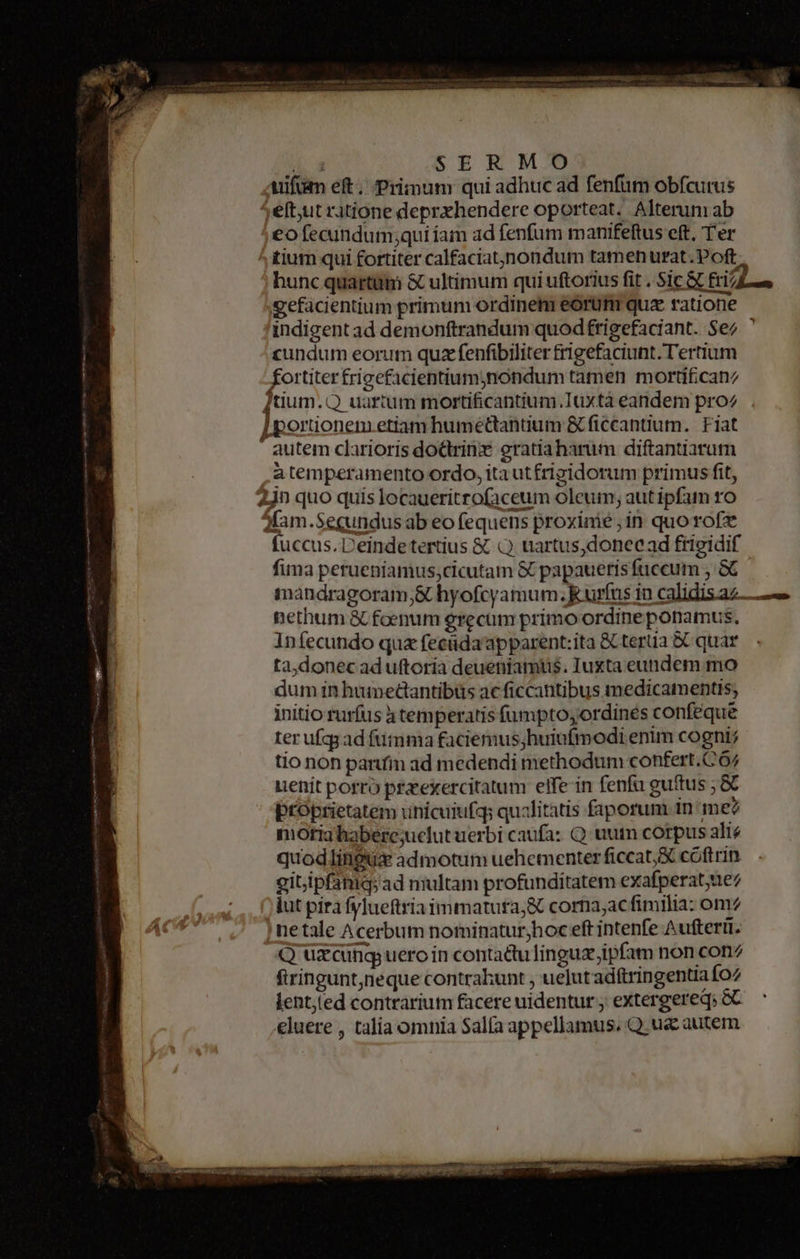 SERMO
uisum est. Primum qui adhuc ad sensum obscurus
est,ut ratione depræhendere oporteat. Alterum ab
eo secundum,qui iam ad sensum manifestus est. Ter
tium qui fortiter calfaciat,nondum tamen urat. Post
hunc quartum & ultimum qui ustorius fit. Sic & fri⸗
gefacientium primum ordinem eorum quæ ratione
indigent ad demonstrandum quod frigefaciant. Se⸗
cundum eorum quæ sensibiliter frigefaciunt. Tertium
fortiter frigefacientium,nondum tamen mortifican⸗
tium. Quartum mortificantium. Iuxta eandem pro⸗
portionem etiam humectantium & siccantium. Fiat
autem clarioris doctrinæ gratia harum distantiarum
à temperamento ordo, ita ut frigidorum primus sit,
in quo quis locauerit rosaceum oleum, aut ipsam ro
sam. Secundus ab eo sequens proxime, in quo rosæ
succus. Deinde tertius & Quartus,donec ad frigidis
sima perueniamus,cicutam & papaueris succum, &
mandragoram,& hyoscyamum. Rursus in calidis a⸗
nethum & fœnum grecum primo ordine ponamus.
In secundo quæ secũda apparent:ita & tertia & quar
ta,donec ad ustoria deueniamus. Iuxta eundem mo
dum in humectantibus ac siccantibus medicamentis,
initio rursus à temperatis sumpto,ordines conseque
ter usq; ad summa faciemus,huiusmodi enim cogni⸗
tio non parũm ad medendi methodum confert. Cõ⸗
uenit porro præexercitatum esse in sensu gustus, &
proprietatem uniciuiusq; qualitatis saporum in me⸗
moria habere,uelut uerbi causa: Quum corpus ali⸗
quod linguæ admotum uehementer siccat,& cõstrin
git,ipsamq; ad multam profunditatem exasperat,ue⸗
lut pira syluestria immatura,& corna,ac similia: om⸗
ne tale Acerbum nominatur,hoc est intense Austerũ.
Quæcunq; uero in contactu linguæ,ipsam non con⸗
stringunt,neque contrahunt, uelut adstringentia so⸗
lent,sed contrarium facere uidentur, extergereq; &
eluere, talia omnia Salsa appellamus. Quæ autem